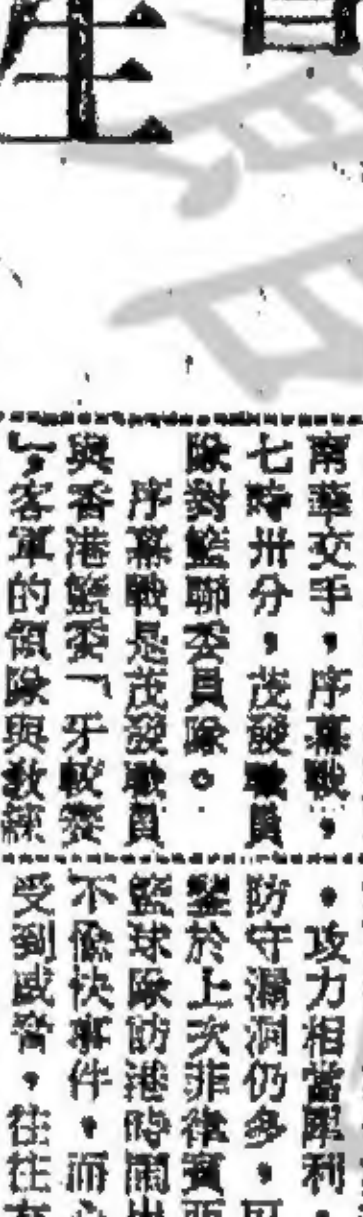 南華交手，序幕戰，
七時卅分，茂發職員
隊對籃聯委員隊。
序幕戰是茂發職員
與香港籃委「牙較賽
」，客軍的領隊與教練
，攻力相當犀利，
防守漏洞仍多，
鑒於上次菲律賓
籃球隊訪港時鬧出
不愉快事件，而
受到威脅，往往